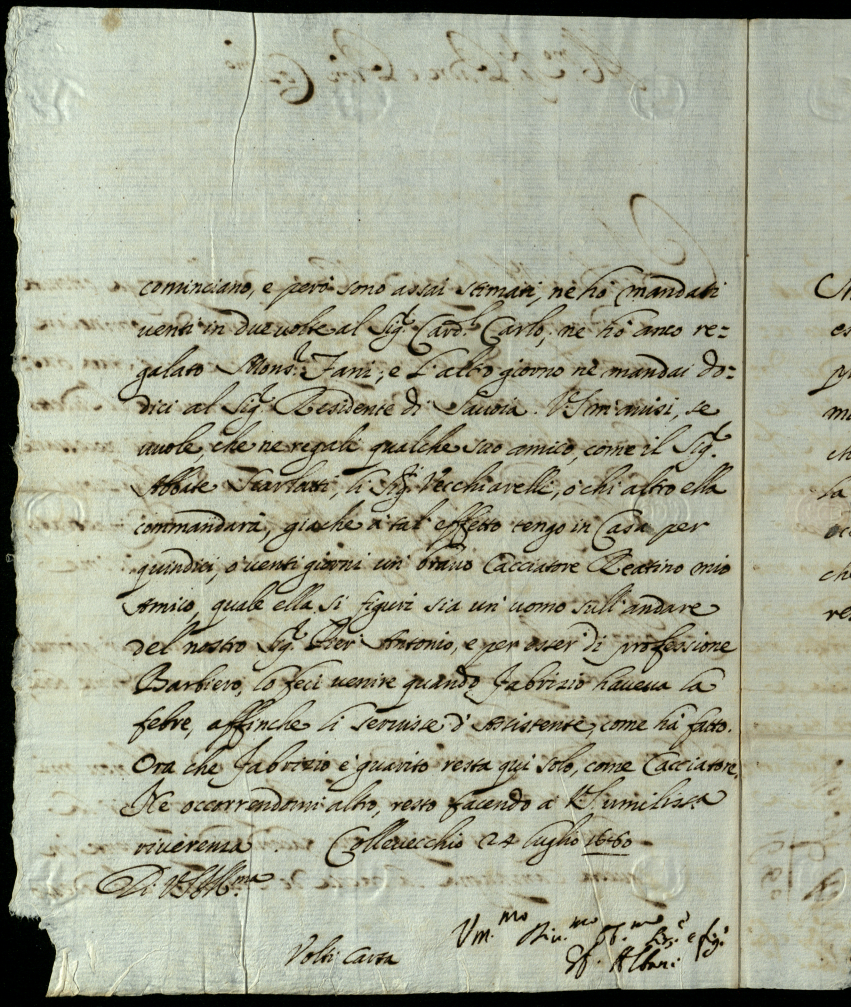 cominciano, e però sono assai stimati, nè hò mandati
venti in due volte al Sig.r Card.l Carlo, ne hò anco re=
galato Mons.r Fani; e l'altro giorno nè mandai do=
dici al Sig.r Residente di Savoia. VS Ill.ma avisi, se
vuole, che ne regali qualche suo amico, come il Sig.r
Abbate Scarlatti, li Sig.ri Vecchiarelli, ò chi altro ella
commandarà, giache a tal' effetto tengo in Casa per
quindici, ò venti giorni un' bravo Cacciatore Reatino mio
Amico, quale ella si figuri sia un' uomo sull' andare
del' nostro Sig.r Pier' Antonio, e per esser' di professione
Barbiero, lo feci venire quando Fabrizio haveva la
febre, affinche li servisse d' Assistente, come hà fatto.
Ora che Fabrizio è guarito resta qui solo, come Cacciatore.
Ne occorrendomi altro, resto facendo a VS umiliss.a
riverenza. Collevecchio 24 luglio 1660
Di VS Ill.ma
Um.mo Div.mo Obb.mo e fig.o
Albani
Volti Carta